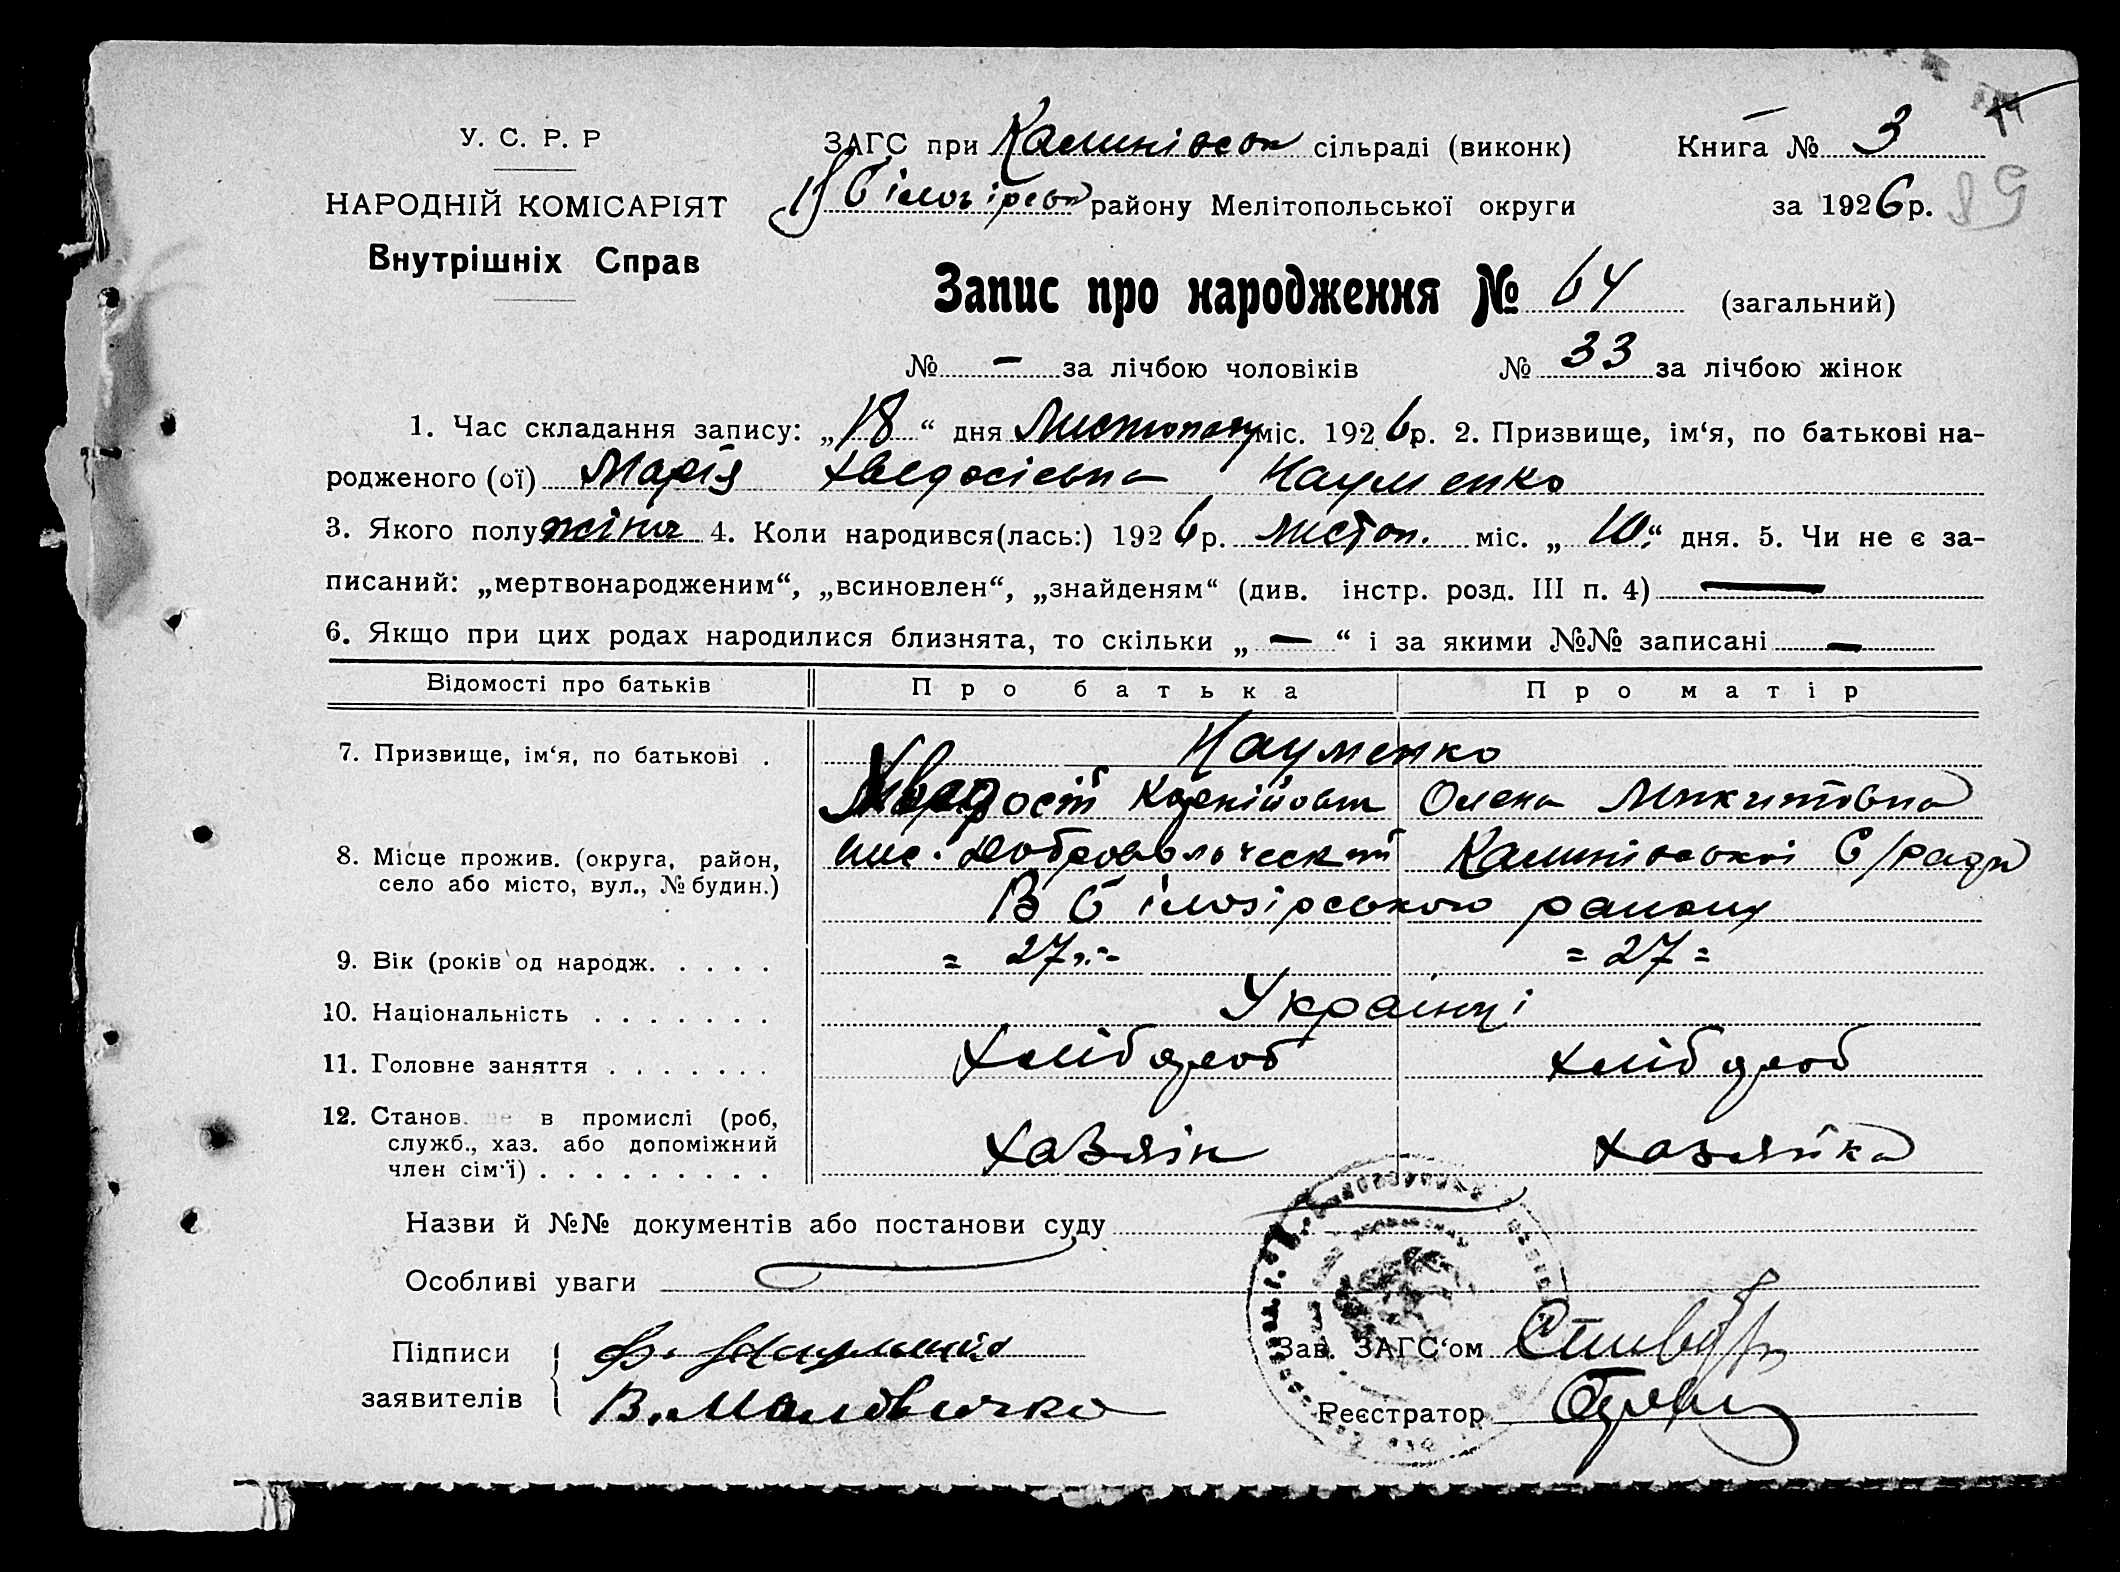 У. С. Р. Р
НАРОДНІЙ КОМІСАРІЯТ
Внутрішніх Справ
ЗАГС при Калинівськ сільраді (виконк)
В Білозірськ району Мелітопольської округи
Книга № 3
за 1926 р.
Запис про народження № 64 (загальний)
№ — за лічбою чоловіків № 33 за лічбою жінок
1. Час складання запису: „18“ дня Листопаду міс. 1926 р. 2. Призвище, ім‘я, по батькові на-
родженого (ої) Марія Хведосієвна Науменко
3. Якого полу жіноч 4. Коли народився(лась:) 1926 р. листоп. міс. „10“ дня. 5. Чи не є за-
писаний: „мертвонародженим“, „всиновлен“, „знайденям“ (див. інстр. розд. III п. 4) —
6. Якщо при цих родах народилися близнята, то скільки „ — “ і за якими №№ записані —
Відомості про батьків Про батька Про матір
7. Призвище, ім‘я, по батькові . Науменко
Хведосій Корнійович Олена Микитовна
8. Місце прожив. (округа, район, Добровольческий Калинівської С/ради
село або місто, вул., № будин.) В Білозірського району
9. Вік (років од народж. . . . . = 27 = = 27 =
10. Національність . . . . . . . Українці
11. Головне заняття . . . . . . . Хлібороб хлібороб
12. Станов. ще в промислі (роб,
служб., хаз. або допоміжний Хазяїн хазяйка
член сім‘ї) . . . . . . . . .
Назви й №№ документів або постанови суду
Особливі уваги
Підписи Ф. Науменко Зав. ЗАГС‘ом
заявителів В. Маловичко Реєстратор